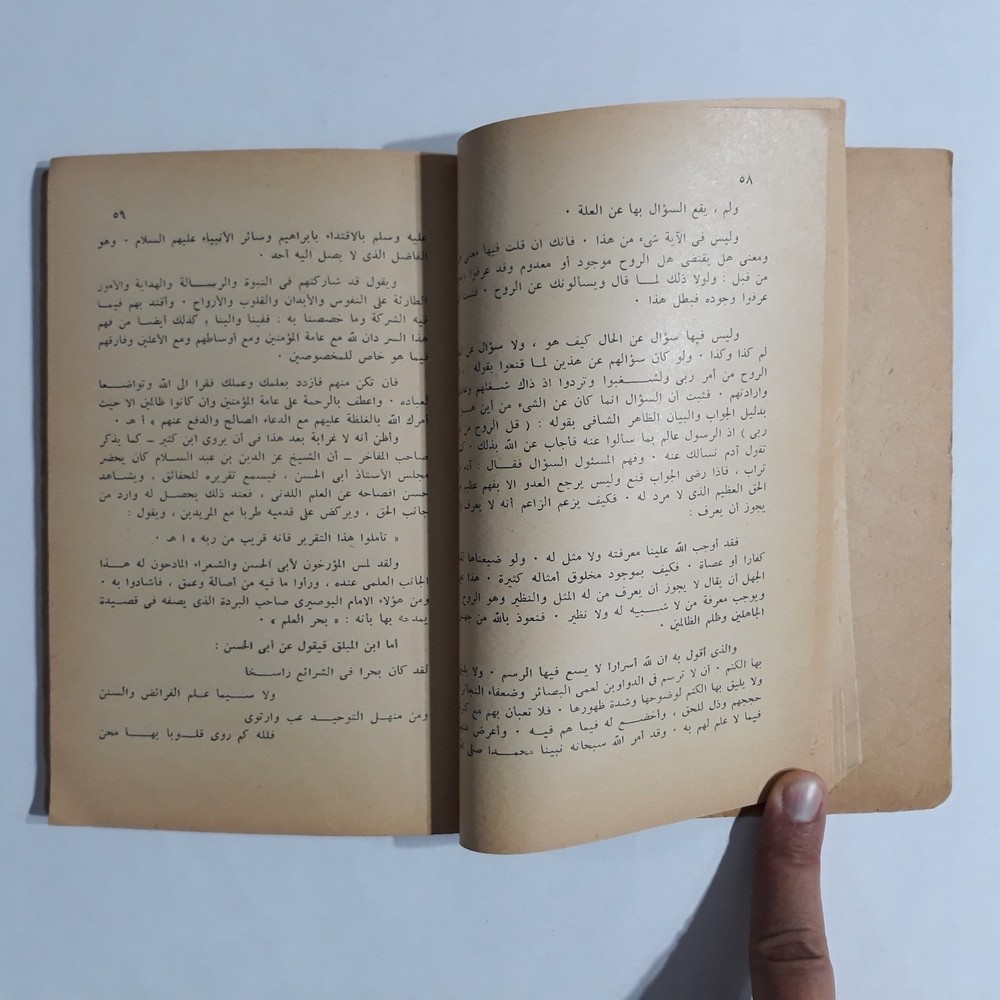 ٥٨
ولم ، يقع السؤال بها عن العلة ٠
وليس فى الآية شىء من هذا ٠ فانك ان قلت فيها معنى
ومعنى هل يقتضى هل الروح موجود أو معدوم وقد عرفوا
من قبل : ولولا ذلك لما قال ويسالونك عن الروح ٠
عرفوا وجوده فبطل هذا ٠
وليس فيها سؤال عن الحال كيف هو ، ولا سؤال عن
لم كذا وكذا ٠ ولو كان سؤالهم عن هذين لما قنعوا بقوله
الروح من أمر ربى ولشغبوا وترددوا اذ ذاك شغلهم
وارادتهم ٠ فثبت أن السؤال انما كان عن الشىء من أين هو
بدليل الجواب والبيان الظاهر الشافى بقوله : ( قل الروح من
ربى ) اذ الرسول عالم بما سالوا عنه فأجاب عن الله بذلك ٠
تقول آدم نسالك عنه ٠ وفهم المسئول السؤال فقال : آدم
تراب ، فاذا رضى الجواب قنع وليس يرجع العدو الا بفهم عظيم
الحق العظيم الذى لا مرد له ٠ فكيف يزعم الزاعم أنه لا يعرف
يجوز أن يعرف :
فقد أوجب الله علينا معرفته ولا مثل له ٠ ولو ضيعناها
كفارا أو عصاة ٠ فكيف بموجود مخلوق أمثاله كثيرة ٠ هذا
الجهل أن يقال لا يجوز أن يعرف من له المثل والنظير وهو الروح
ويوجب معرفة من لا شبيه له ولا نظير ٠ فنعوذ بالله من
الجاهلين وظلم الظالمين ٠
والذى أقول به ان لله أسرارا لا يسع فيها الرسم ٠ ولا
بها الكتم ٠ أن لا ترسم فى الدواوين لعمى البصائر وضعفاء
ولا يليق بها الكتم لوضوحها وشدة ظهورها ٠ فلا تعبان بهم مع
حججهم وذل للحق ، وأخضع له فيما هم فيه ٠ وأعرض
فيما لا علم لهم به ٠ وقد أمر الله سبحانه نبينا محمدا صلى
٥٩
عليه وسلم بالاقتداء بابراهيم وسائر الأنبياء عليهم السلام ٠ وهو
الفاضل الذى لا يصل اليه أحد ٠
ويقول قد شاركتهم فى النبوة والرسالة والهداية والأمور
الطارئة على النفوس والأبدان والقلوب والأرواح ٠ وأقتد بهم فيما
فيه الشركة وما خصصنا به : ففينا والينا ، كذلك أيضا من فهم
هذا السر دان لله مع عامة المؤمنين ومع أوساطهم ومع الأعلين وفارقهم
فيما هو خاص للمخصوصين ٠
فان تكن منهم فازدد بعلمك وعملك فقرا الى الله وتواضعا
لعباده ٠ واعطف بالرحمة على عامة المؤمنين وان كانوا ظالمين الا حيث
أمرك الله بالغلظة عليهم مع الدعاء الصالح والدفع عنهم » أ هـ ٠
وأظن أنه لا غرابة بعد هذا فى أن يروى ابن كثير ــ كما يذكر
صاحب المفاخر ــ أن الشيخ عز الدين بن عبد السلام كان يحضر
مجلس الأستاذ أبى الحسن ، فيسمع تقريره للحقائق ، ويشاهد
حسن افصاحه عن العلم اللدنى ، فعند ذلك يحصل له وارد من
جانب الحق ، ويركض على قدميه طربا مع المريدين ، ويقول :
« تأملوا هذا التقرير فانه قريب من ربه » أ هـ ٠
ولقد لمس المؤرخون لأبى الحسن والشعراء المادحون له هذا
الجانب العلمى عنده ، ورأوا ما فيه من أصالة وعمق ، فأشادوا به ٠
ومن هؤلاء الامام البوصيرى صاحب البردة الذى يصفه فى قصيدة
يمدحه بها بأنه : « بحر العلم » ٠
أما ابن المبلق فيقول عن أبى الحسن :
لقد كان بحرا فى الشرائع راسخا
ولا سيما علم الفرائض والسنن
ومن منهل التوحيد عب وارتوى
فلله كم روى قلوبا بها محن